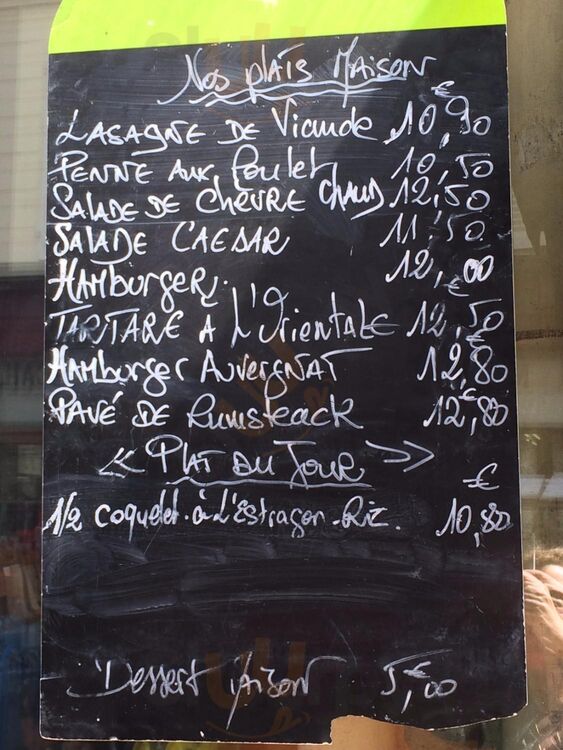 Nos plats Maison
LASAGNE DE Viande 10,90 €
PENNE AUX Poulet 10,50
SALADE DE CHÈVRE CHAUD 12,50
SALADE CAESAR 11,50
HAMBURGER. 12,00
TARTARE A L'ORIENTALE 12,50 €
HAMBURGER AUVERGNAT 12,80 €
PAVÉ DE Rumsteack 12,80 €
<< PLAT DU JOUR >>
1/2 coquelet à l'Estragon-Riz. 10,80 €
Dessert Maison 5,00 €